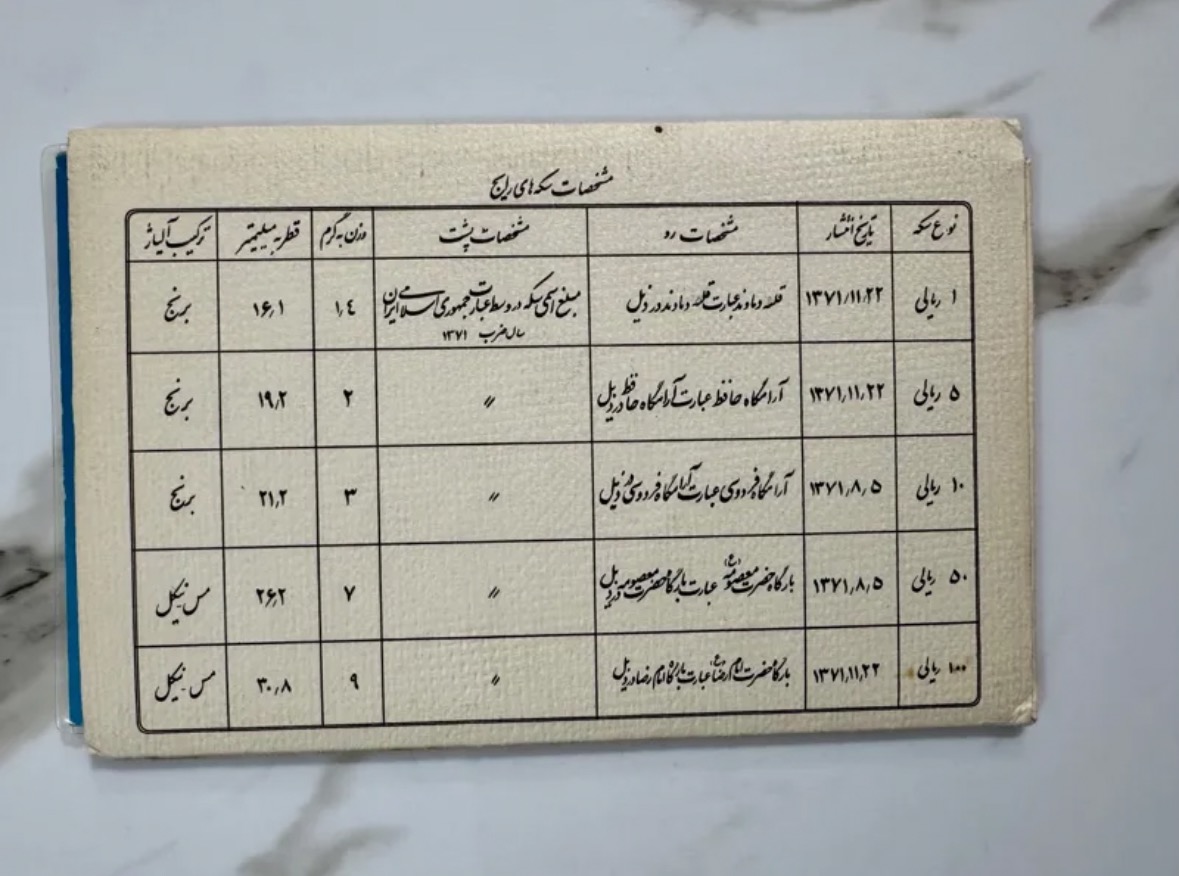 مشخصات سکه های رایج
نوع سکه تاریخ انتشار مشخصات رو مشخصات پشت وزن به گرم قطر به میلیمتر ترکیب آلیاژ
۱ ریالی ۱۳۷۱٫۱۱٫۲۲ قله دماوند عبارت قله دماوند در ذیل مبلغ اسمی سکه در وسط عبارت جمهوری اسلامی ایران ۱٫٤ ۱۶٫۱ برنج
سال ضرب ۱۳۷۱
۵ ریالی ۱۳۷۱٫۱۱٫۲۲ آرامگاه حافظ عبارت آرامگاه حافظ در ذیل 〃 ۲ ۱۹٫۲ برنج
۱۰ ریالی ۱۳۷۱٫۸٫۵ آرامگاه فردوسی عبارت آرامگاه فردوسی در ذیل 〃 ۳ ۲۱٫۲ برنج
۵۰ ریالی ۱۳۷۱٫۸٫۵ بارگاه حضرت معصومه (ع) عبارت بارگاه حضرت معصومه در ذیل 〃 ۷ ۲۶٫۲ مس نیکل
۱۰۰ ریالی ۱۳۷۱٫۱۱٫۲۲ بارگاه حضرت امام رضا (ع) عبارت بارگاه امام رضا در ذیل 〃 ۹ ۳۰٫۸ مس نیکل